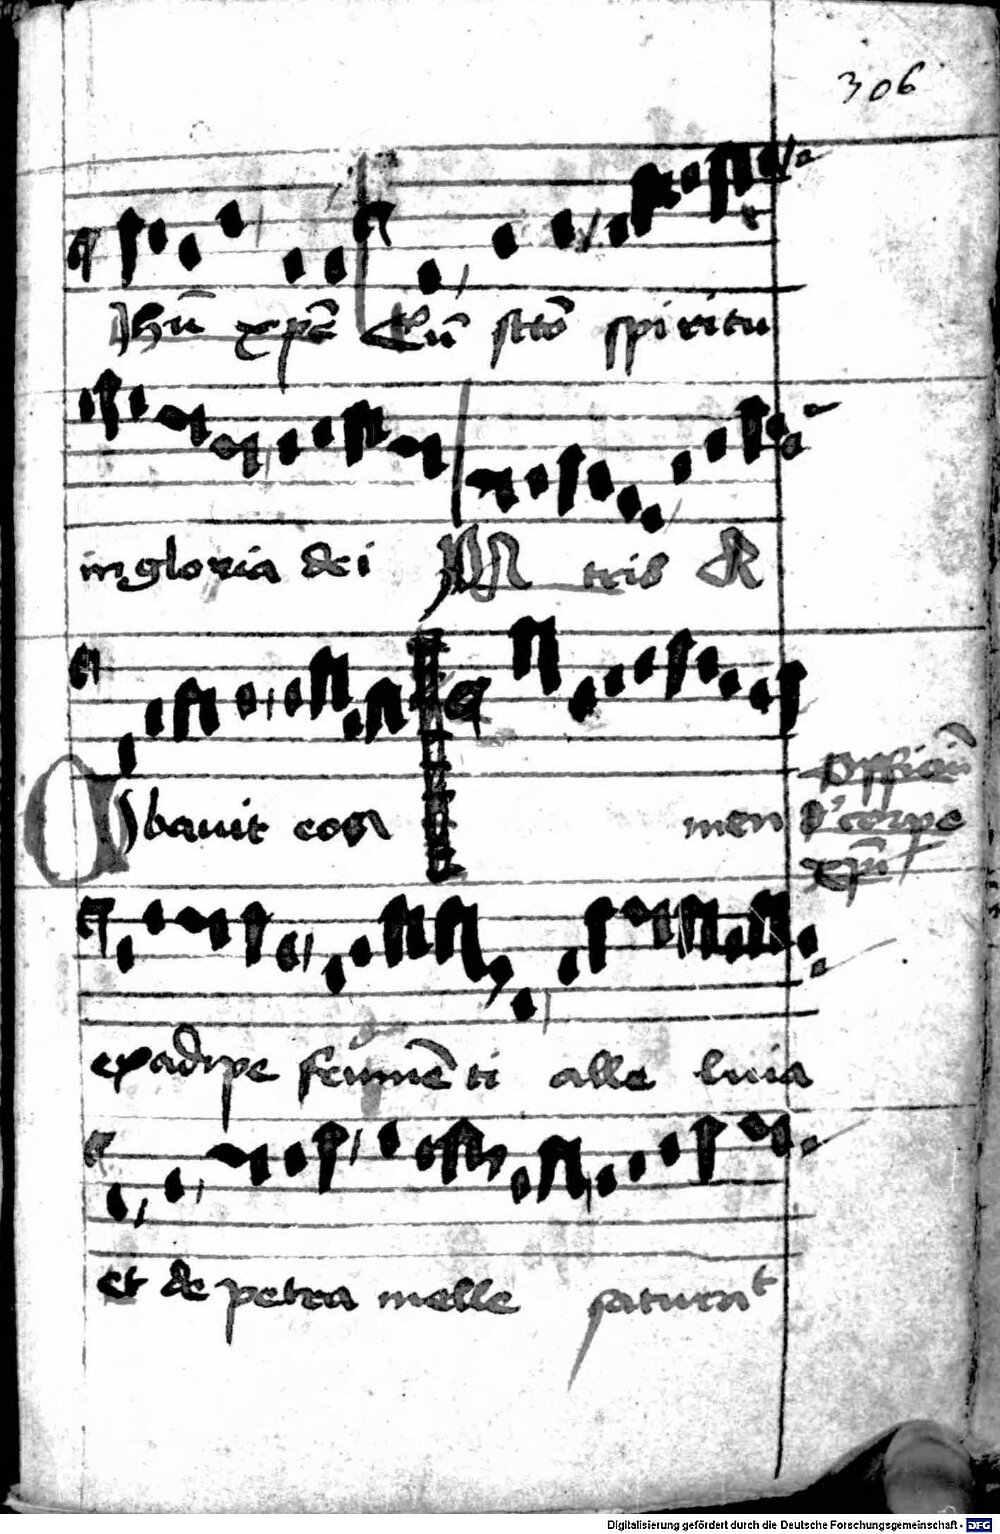 306
Jhū xp̄e Cū sctō spiritu
in gloria dei Patris A
Cibauit eos men
Officiū
d' corpe
xpi
ex adipe frumēti alle luia
et de petra melle saturaͭ
Digitalisierung gefördert durch die Deutsche Forschungsgemeinschaft - DFG